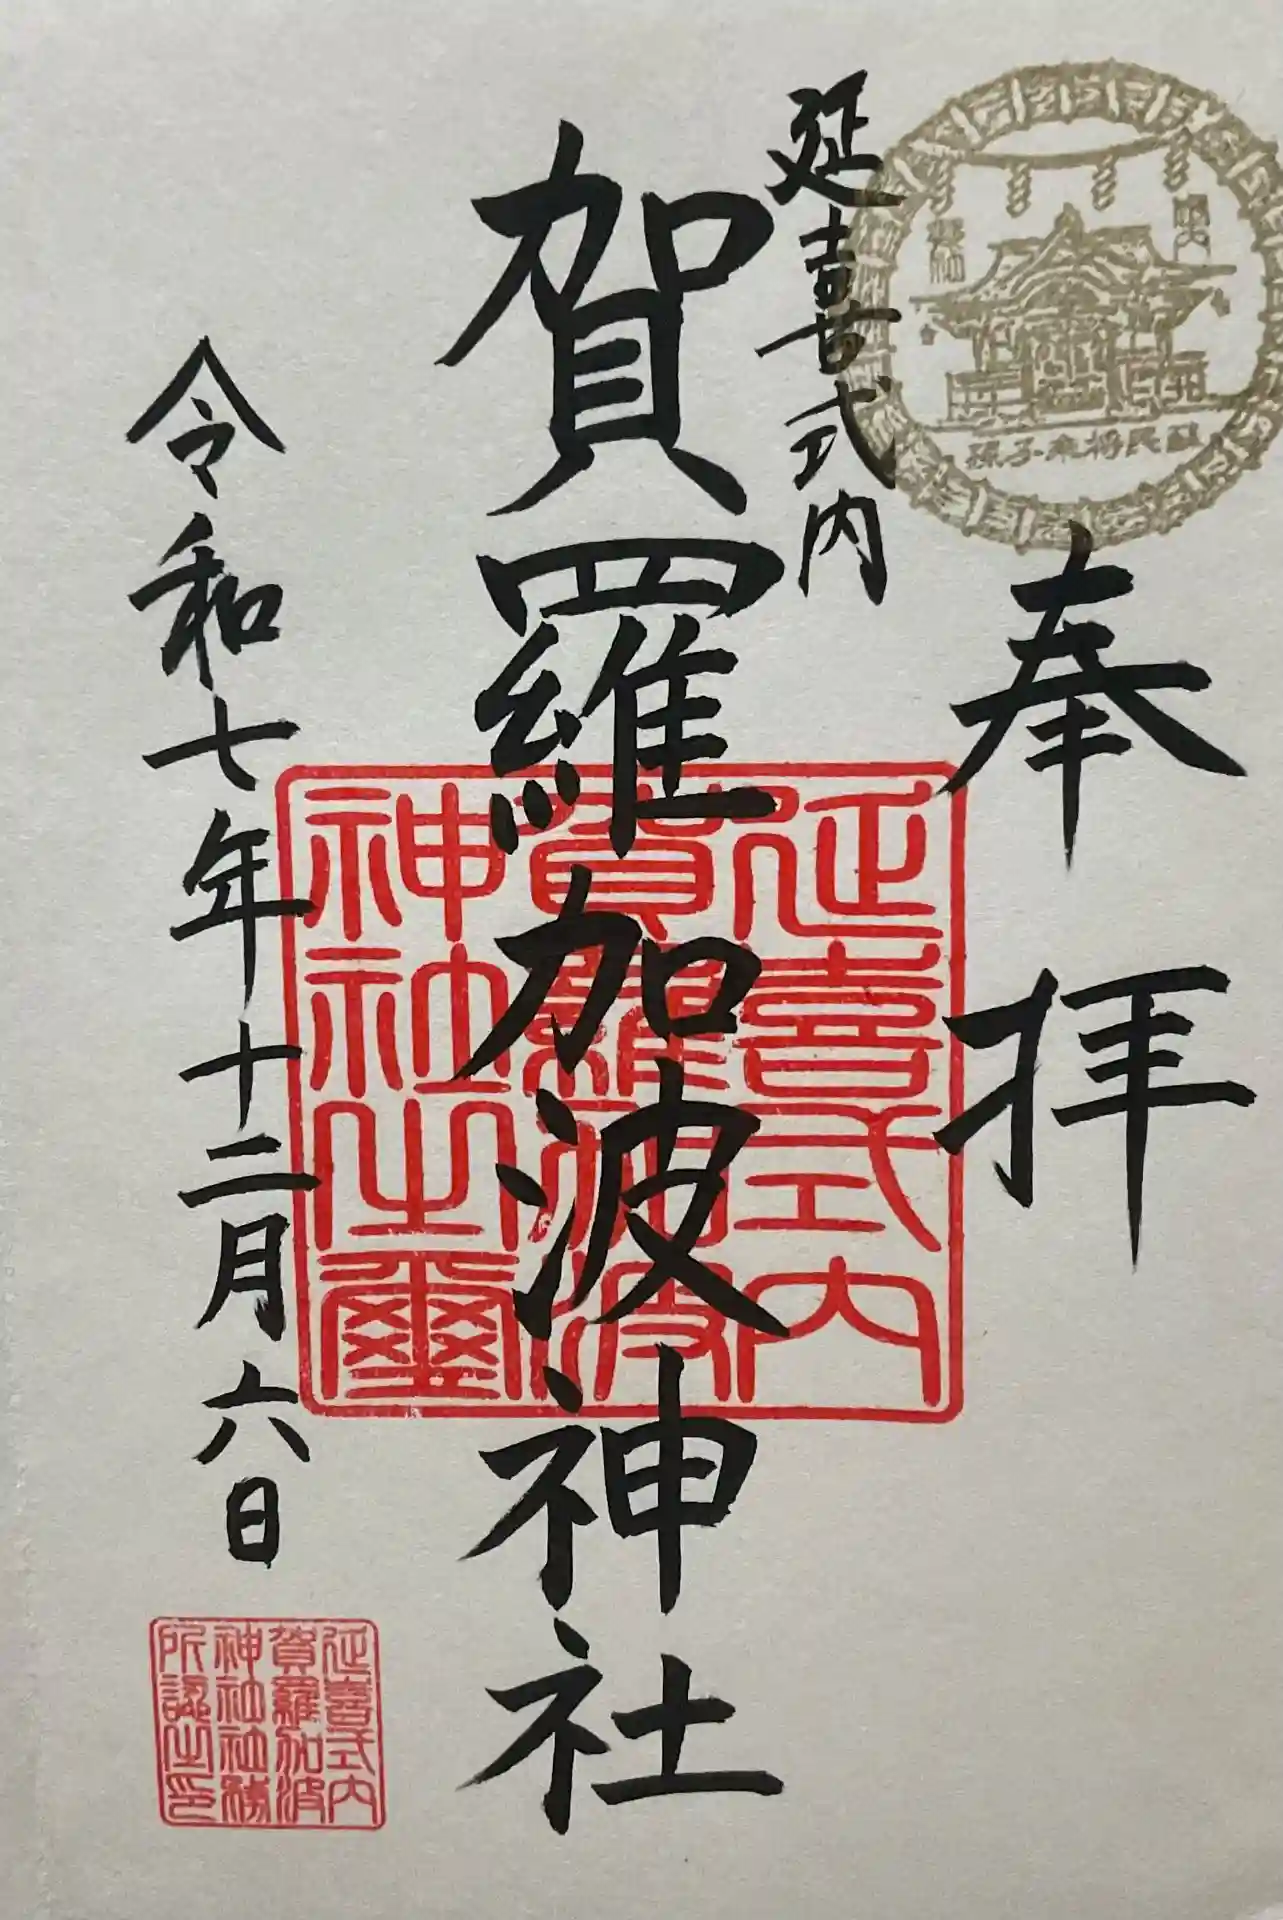 奉拝
延喜式内
賀羅加波神社
令和七年十二月六日
蘇民将来子孫
延喜式内
賀羅加波
神社之璽
延喜式内
賀羅加波
神社社務
所認之印